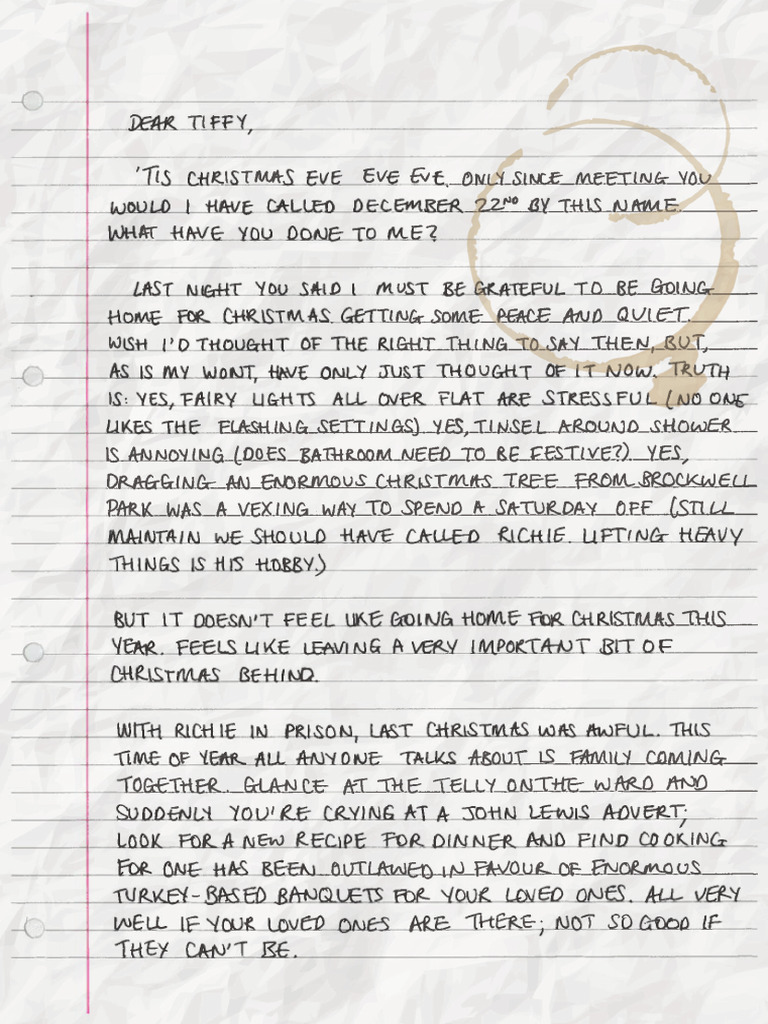 DEAR TIFFY,
'TIS CHRISTMAS EVE EVE EVE. ONLY SINCE MEETING YOU
WOULD I HAVE CALLED DECEMBER 22ND BY THIS NAME.
WHAT HAVE YOU DONE TO ME?
LAST NIGHT YOU SAID I MUST BE GRATEFUL TO BE GOING
HOME FOR CHRISTMAS. GETTING SOME PEACE AND QUIET.
WISH I'D THOUGHT OF THE RIGHT THING TO SAY THEN, BUT,
AS IS MY WONT, HAVE ONLY JUST THOUGHT OF IT NOW. TRUTH
IS: YES, FAIRY LIGHTS ALL OVER FLAT ARE STRESSFUL (NO ONE
LIKES THE FLASHING SETTINGS) YES, TINSEL AROUND SHOWER
IS ANNOYING (DOES BATHROOM NEED TO BE FESTIVE?) YES,
DRAGGING AN ENORMOUS CHRISTMAS TREE FROM BROCKWELL
PARK WAS A VEXING WAY TO SPEND A SATURDAY OFF (STILL
MAINTAIN WE SHOULD HAVE CALLED RICHIE. LIFTING HEAVY
THINGS IS HIS HOBBY.)
BUT IT DOESN'T FEEL LIKE GOING HOME FOR CHRISTMAS THIS
YEAR. FEELS LIKE LEAVING A VERY IMPORTANT BIT OF
CHRISTMAS BEHIND.
WITH RICHIE IN PRISON, LAST CHRISTMAS WAS AWFUL. THIS
TIME OF YEAR ALL ANYONE TALKS ABOUT IS FAMILY COMING
TOGETHER. GLANCE AT THE TELLY ON THE WARD AND
SUDDENLY YOU'RE CRYING AT A JOHN LEWIS ADVERT;
LOOK FOR A NEW RECIPE FOR DINNER AND FIND COOKING
FOR ONE HAS BEEN OUTLAWED IN FAVOUR OF ENORMOUS
TURKEY-BASED BANQUETS FOR YOUR LOVED ONES. ALL VERY
WELL IF YOUR LOVED ONES ARE THERE; NOT SO GOOD IF
THEY CAN'T BE.